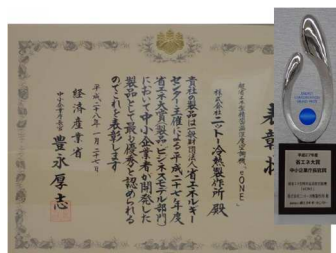 表彰状
株式会社ニットー冷熱製作所 殿
貴社の製品は一般財団法人省エネルギー
センター主催による平成二十七年度
省エネ大賞製品・ビジネスモデル部門
において中小企業者が開発した
製品として最も優秀と認められる
のでこれを表彰します
平成二十八年一月二十七日
経済産業省
中小企業庁長官 豊永厚志
平成27年度
省エネ大賞
中小企業庁長官賞